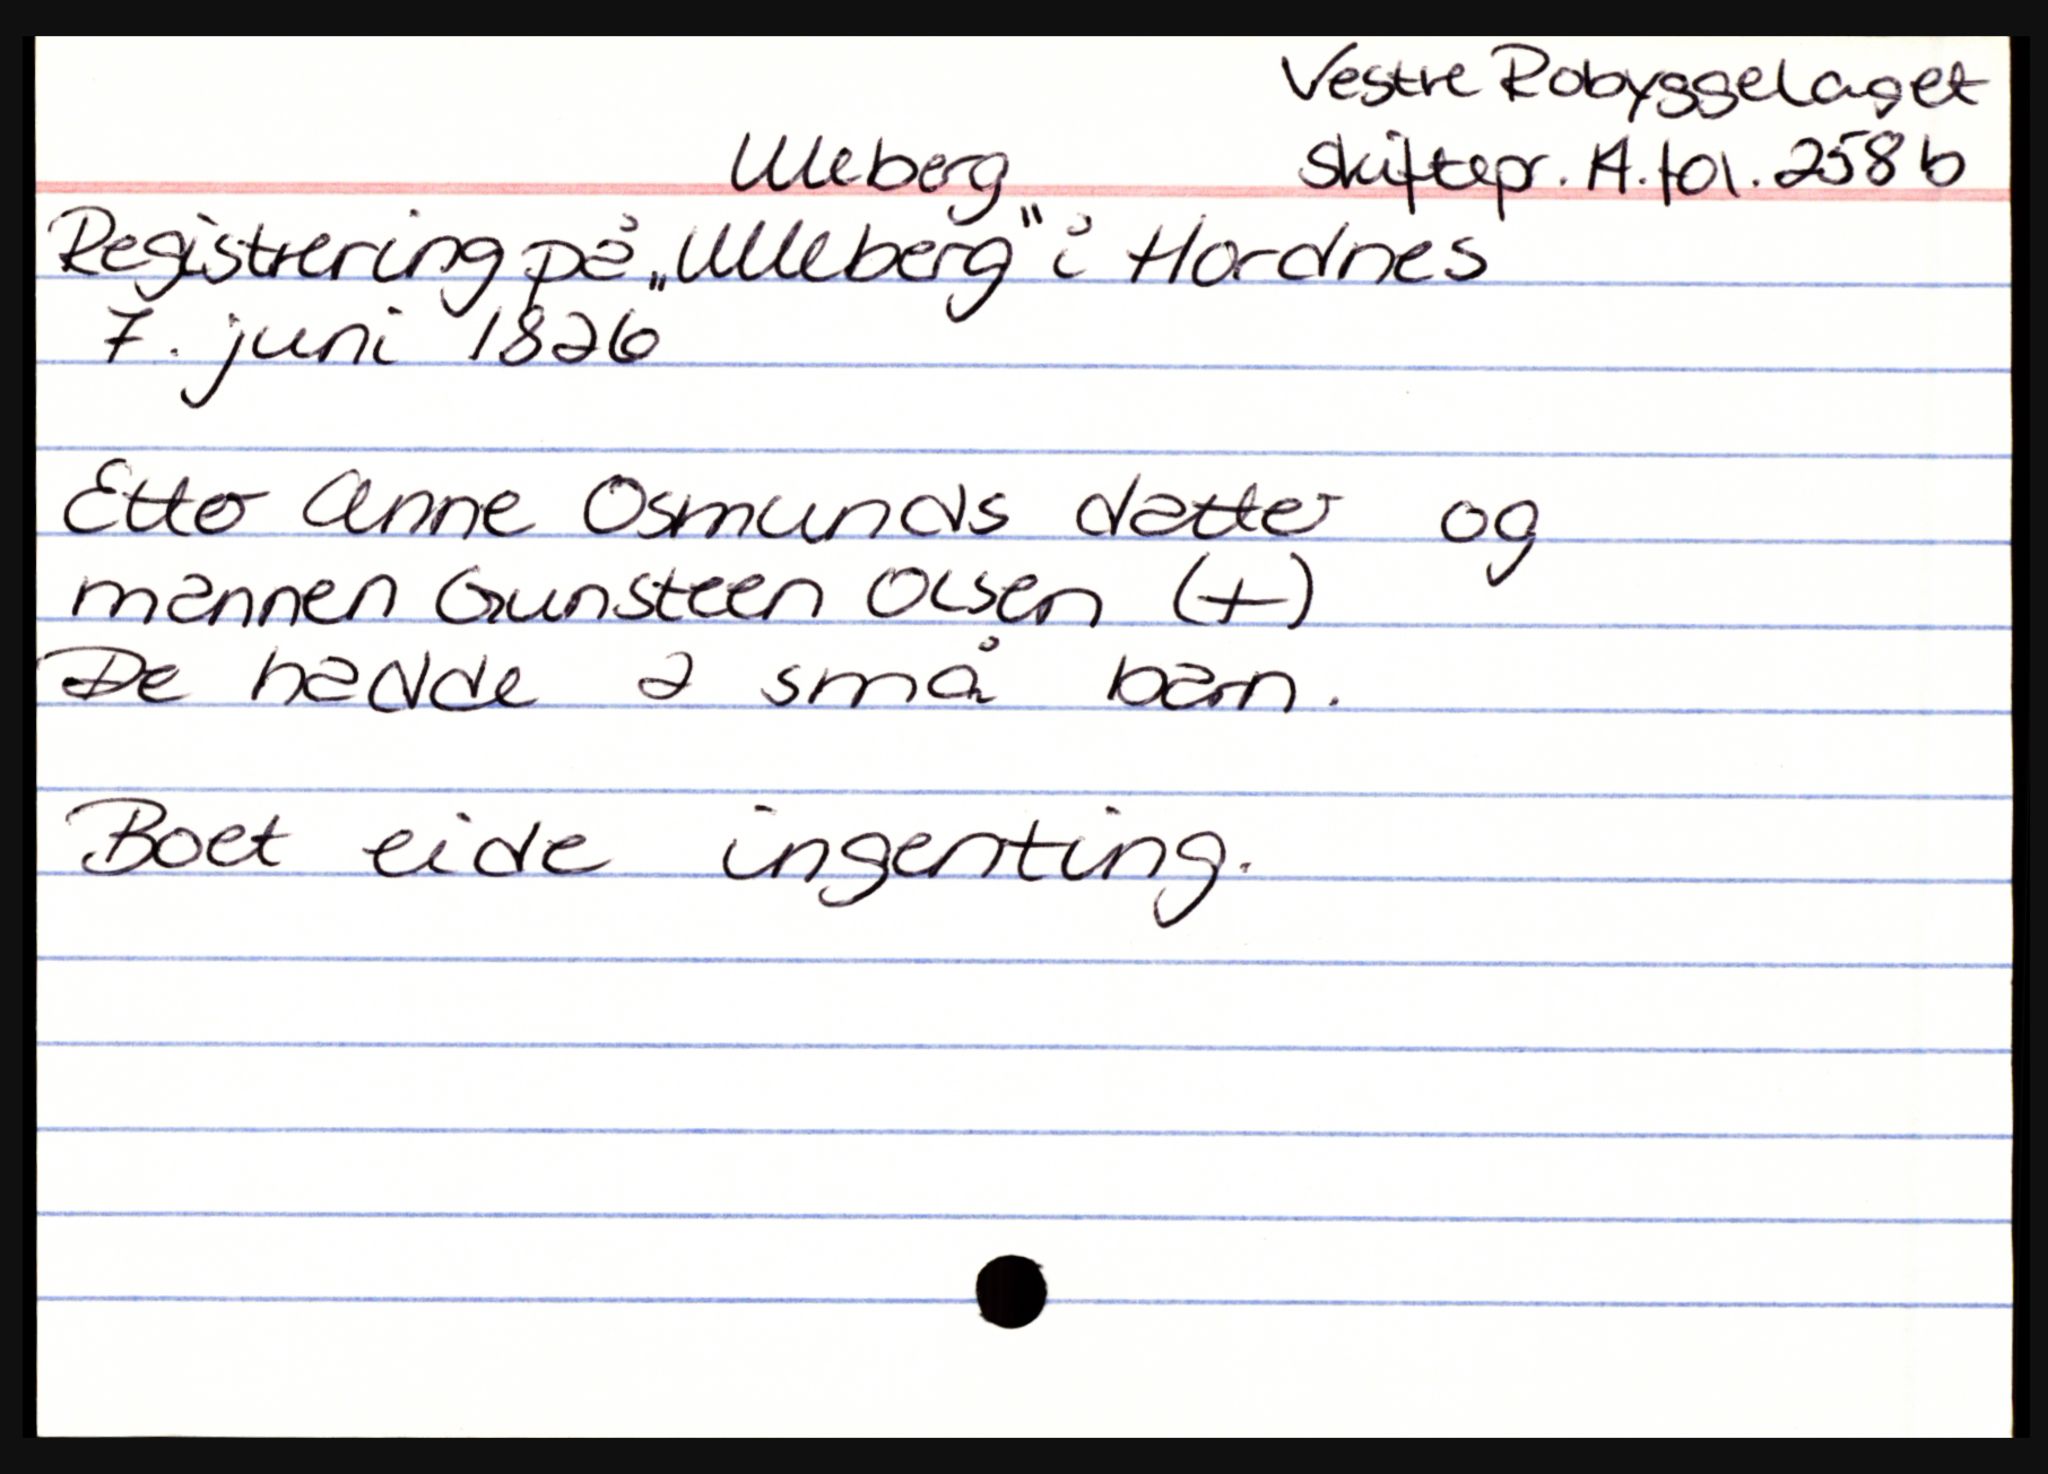 Vestre Robyggelaget
Uleberg
Skiftepr. 14. fol. 258 b
Registrering på „Ulleberg" i Hordnes
7. juni 1826
Etter Anne Osmunds datter og
mannen Gunsteen Olsen (+)
De hadde 2 små barn.
Boet eide ingenting.